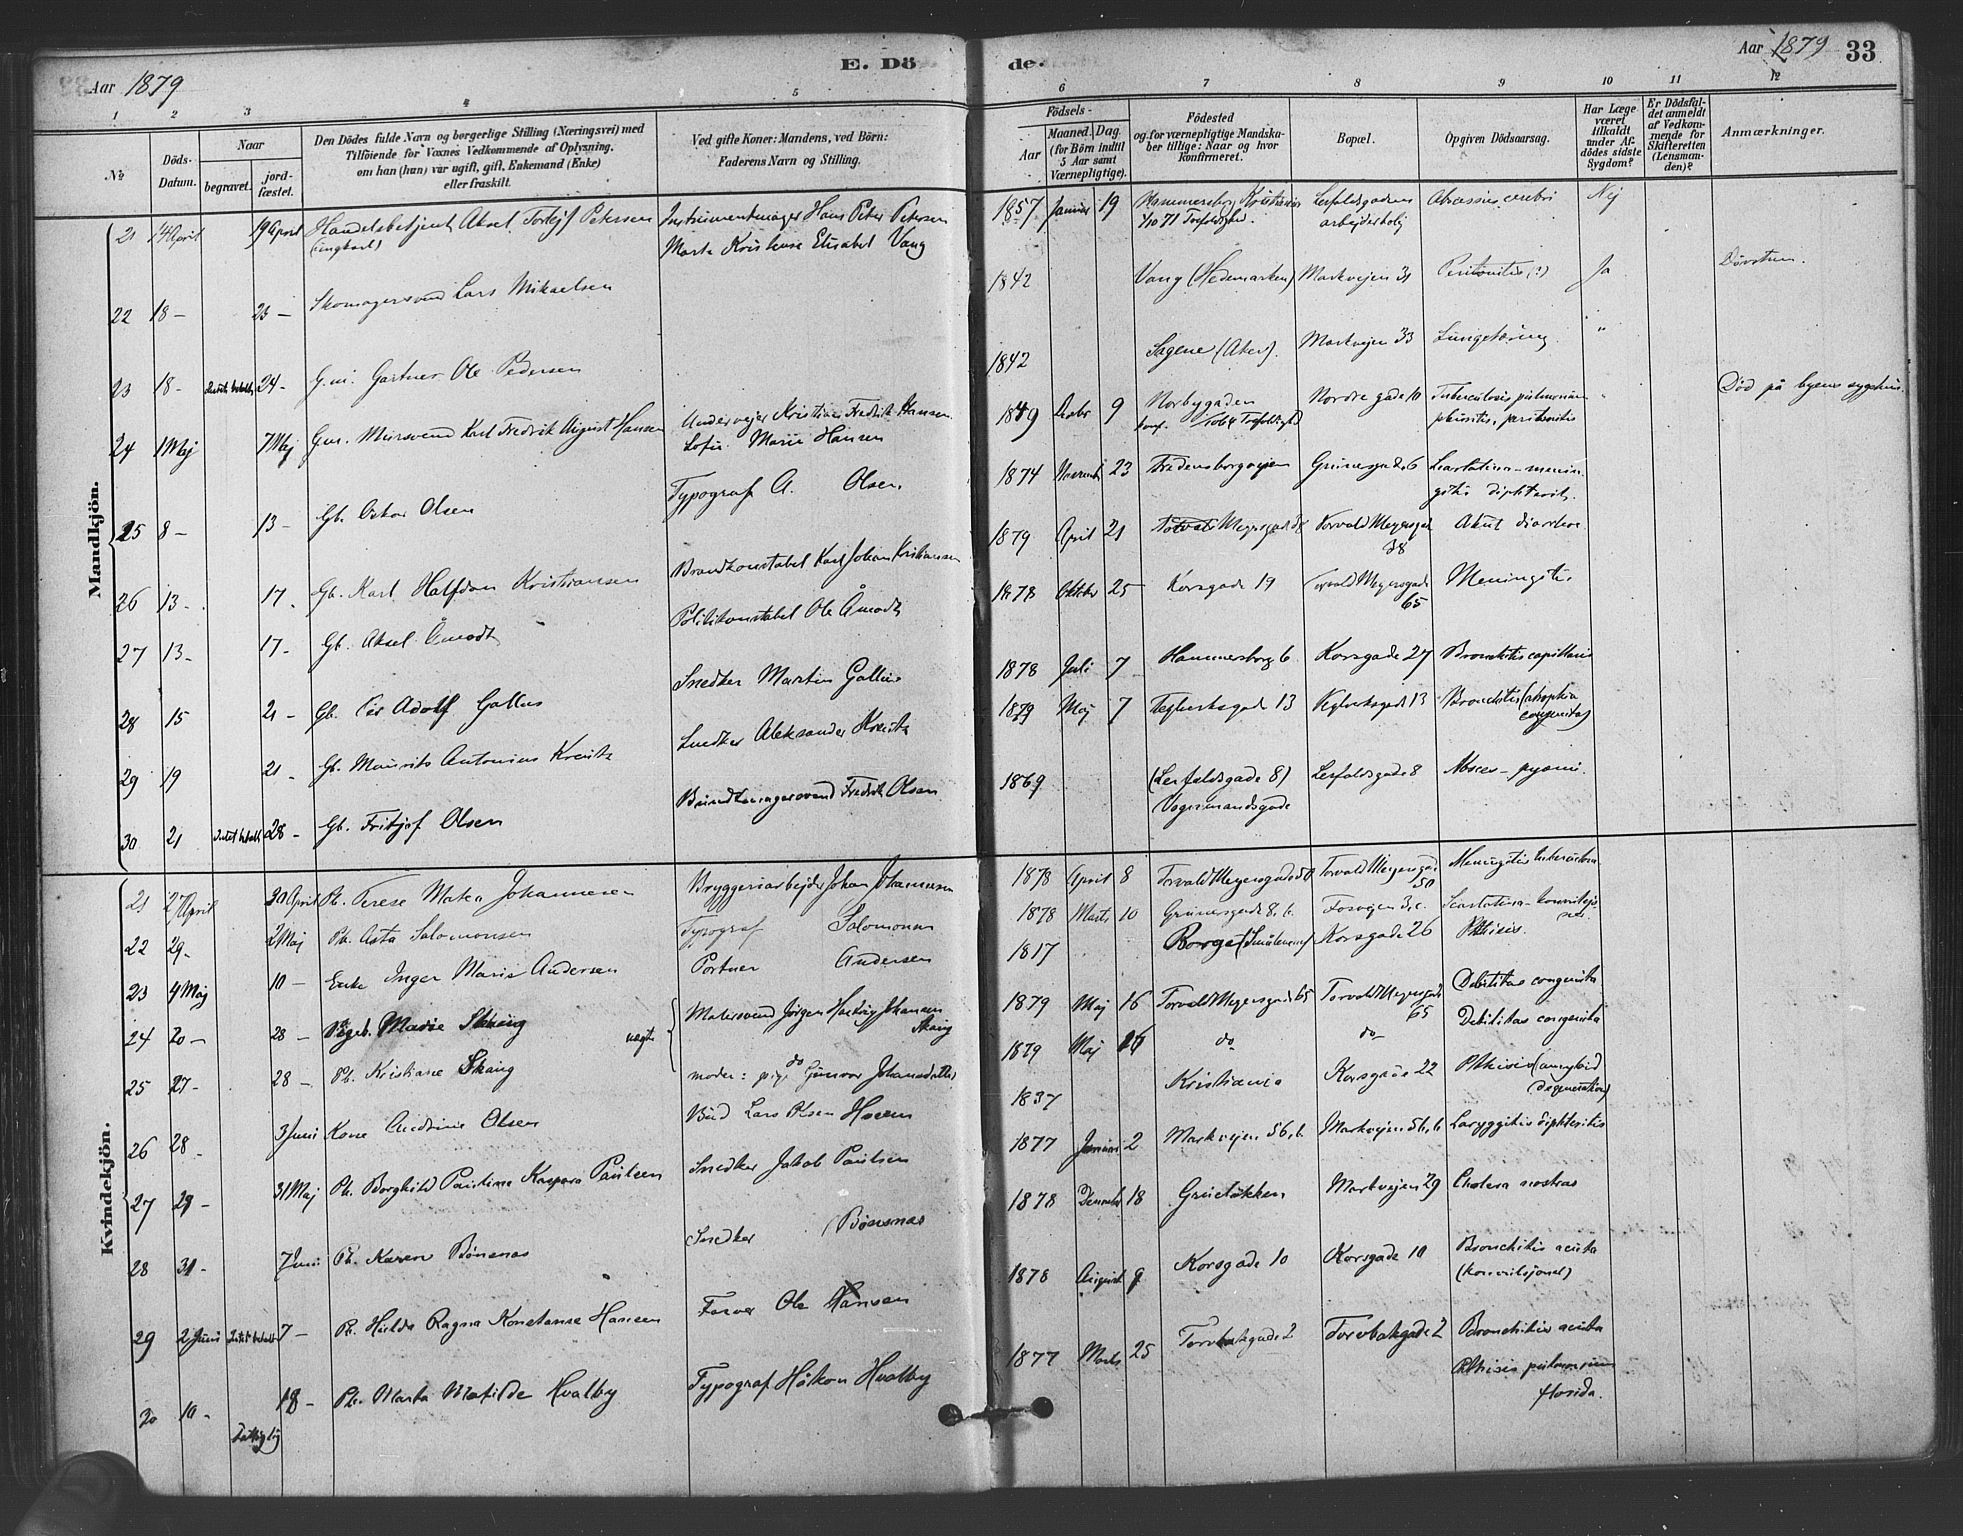 Aar 1879
E. Dö
de.
Aar 1879 33
1 2 3 4 5 6 7 8 9 10 11 12
No
Döds-Datum.
Naar
begravet.
jord-fæstet.
Den Dödes fulde Navn og borgerlige Stilling (Næringsvei) med
Tilföiende for Voxnes Vedkommende af Oplysning,
om han (hun) var ugift, gift, Enkemand (Enke)
eller fraskilt.
Ved gifte Koner: Mandens, ved Börn:
Faderens Navn og Stilling.
Födsels-
Aar
Maaned. Dag.
(for Börn indtil
5 Aar samt
Værnepligtige).
Födested
og for værnepligtige Mandska-
ber tillige: Naar og hvor
konfirmeret.
Bopæl.
Opgiven Dödsaarsag.
Har Læge
været
tilkaldt
under Af-
dödes sidste
Sygdom?
Er Dödsfal-
det anmeldt
af Vedkom-
mende for
Skifteretten
(Lensman-
den)?
Anmærkninger.
Mandkjön.
21 14 April 19 April Handelsbetjent Aksel Torlejf Petersen Instrumentmager Hans Peter Petersen 1857 Januar 19 Hammersborg Kristiania Nej
(ungkarl) Marte Kristine Elisabet Vang arbejderbolig
22 18 - 23 - Skomagersvend Lars Mikaelsen 1842 Vang (Hedemarken) Markvejen 31 Peritonitis (?) Ja Døvstum.
23 18 - 24 - G.m. Gartner Ole Pedersen 1842 Sagene (Aker). Markvejen 33 Lungetæring "
24 1 Maj 7 Maj G.m. Mursvend Karl Fredrik August Hansen Kristian Fredrik Hansen 1849 9 Norbygaden Nordre gade 10 Tuberculosis pulmonum Død på byens sygehus.
Sofie Marie Hansen
25 8 - 13 - Gb. Oskar Olsen Typograf A. Olsen. 1874 November 23 Fredensborgvejen Grünersgade 6 Scarlatina - menin
gitis
26 13 - 17 - Gb. Karl Halfdan Kristiansen Brandkonstabel Karl Johan Kristiansen 1879 April 21 Torvald Meyersgad 38 Akut diarrhoe
27 13 - 17 - Gb. Aksel Åmodt Politikonstabel Ole Åmodt 1878 Oktober 25 Korsgade 19 Torvald Meyersgade 65 Meningitis
28 15 21 - Gb. Adolf Gallus Snedker Martin Gallus 1878 Juli 7 Hammersborg 6 Korsgade 27 Bronchitis capillaris
29 19 21 - Gb. Maurits Antonius Kreutz Snedker Aleksander Kreutz 1879 Maj 7 Teglverksgad 13 Teglverksgad 13 Bronchitis (atrophia
congenita)
30 21 28 - Gb. Fritjof Olsen Bundtmagersvend Fredrik Olsen 1869 (Lerfaldsgade 8) Lerfaldsgade 8
Vognmandsgade
Kvindekjön.
21 27 April 30 April Pb. Terese Matea Johannesen Bryggeriarbejder Johan Johannesen 1878 April 8 Torvald Meyersgade 50 Torvald Meyersgad 50
22 29 - 2 Maj Pb. Asta Salomonsen Typograf Salomonsen 1878 Marts 10 Grünersgade 8, b. Fosvejen 3, c.
23 4 Maj 10 - Enke Inger Marie Andersen Portner Andersen 1817 Korsgade 26 Phthisis.
24 20 - 28 - Marie Skaug Malersvend Jørgen Johansen
Skaug 1879 Maj 16 Torvald Meyersgade 65 Torvald Meyersgade 65 Debilitas congenita
25 27 - 28 - Pb. Kristiane Skaug moder: pige Gunvor Johansdatter 1879 Maj do do Debilitas congenita
26 28 - 3 Juni Kone Andrine Olsen Bud Lars Olsen 1837 Kristiania Korsgade 22 Phthisis (amyloid
degeneration)
27 29 - 31 Maj Pb. Borghild Pauline Kaspara Paulsen Snedker Jakob Paulsen 1877 Januar 2 Markvejen 56, b. Markvejen 56, b Laryggitis diphteritis
28 31 - 7 Juni Pb. Karen Bønsnas Snedker Bønsnas 1878 December 18 Grüneløkken Markvejen 29 Cholera nostras
29 2 Juni 7 - Pb. Hulda Ragna Konstanse Hansen Farver Ole Hansen 1878 August 9 Korsgade 10 Korsgade 10 Bronchitis acuta
(konvulsjoner)
30 10 - 18 - Pb. Marta Matilde Hvalby Typograf Håkon Hvalby 1877 Marts 25 Torvbakgade 2 Torvbakgade 2 Bronchitis acuta
Phthisis pulmonum
florida.